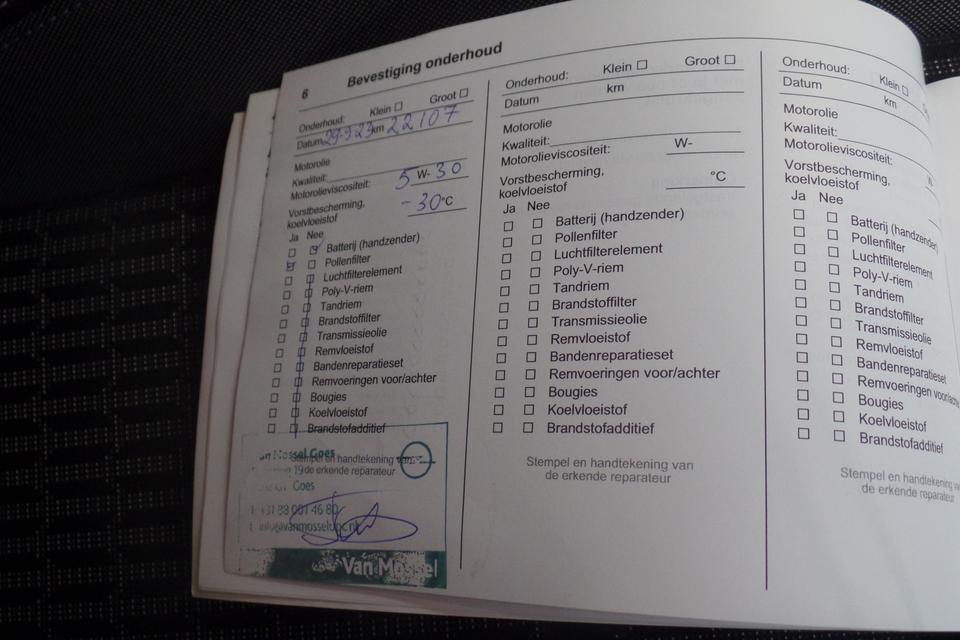 6
Bevestiging onderhoud
Onderhoud: Klein Groot
Datum 29-9-23 km 22107
Motorolie
Kwaliteit:
Motorolieviscositeit: 5 W- 30
Vorstbescherming,
koelvloeistof -30 °C
Ja Nee
Batterij (handzender)
Pollenfilter
Luchtfilterelement
Poly-V-riem
Tandriem
Brandstoffilter
Transmissieolie
Remvloeistof
Bandenreparatieset
Remvoeringen voor/achter
Bougies
Koelvloeistof
Brandstofadditief
Stempel en handtekening van
de erkende reparateur
Mossel Goes
19
Goes
88 001 46 80
Van Mossel
Onderhoud: Klein Groot
Datum km
Motorolie
Kwaliteit:
Motorolieviscositeit: W-
Vorstbescherming,
koelvloeistof °C
Ja Nee
Batterij (handzender)
Pollenfilter
Luchtfilterelement
Poly-V-riem
Tandriem
Brandstoffilter
Transmissieolie
Remvloeistof
Bandenreparatieset
Remvoeringen voor/achter
Bougies
Koelvloeistof
Brandstofadditief
Stempel en handtekening van
de erkende reparateur
Onderhoud: Klein
Datum km
Motorolie
Kwaliteit:
Motorolieviscositeit:
Vorstbescherming,
koelvloeistof
Ja Nee
Batterij (handzender)
Pollenfilter
Luchtfilterelement
Poly-V-riem
Tandriem
Brandstoffilter
Transmissieolie
Remvloeistof
Bandenreparatieset
Remvoeringen
Bougies
Koelvloeistof
Brandstofadditief
Stempel en handtekening
de erkende reparateur